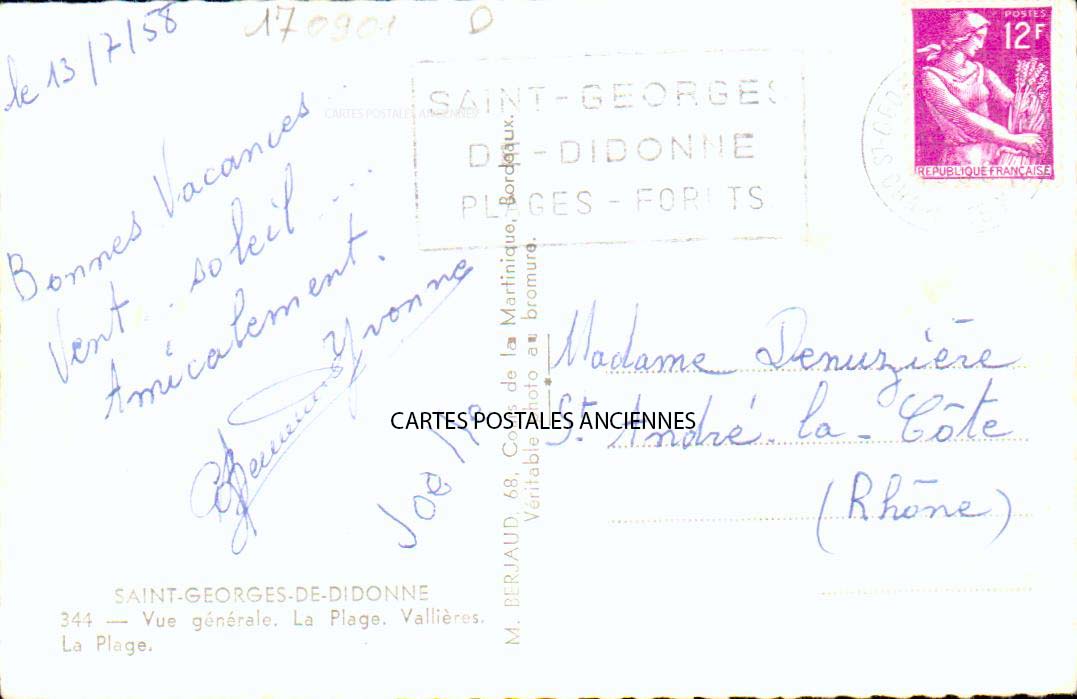 170901 D
le 13/7/58
Bonnes Vacances
Vent .. soleil ....
Amicalement.
Yvonne
Joël
SAINT-GEORGES-DE-DIDONNE
344 — Vue générale. La Plage. Vallières.
La Plage.
M. BERJAUD, 68, Cours de la Martinique, Bordeaux.
Véritable photo au bromure.
SAINT-GEORGES
DE-DIDONNE
PLAGES-FORETS
POSTES
12F
REPUBLIQUE FRANÇAISE
Madame Denuzière
St André-la-Côte
(Rhône)
CARTES POSTALES ANCIENNES
CARTES POSTALES ANCIENNES